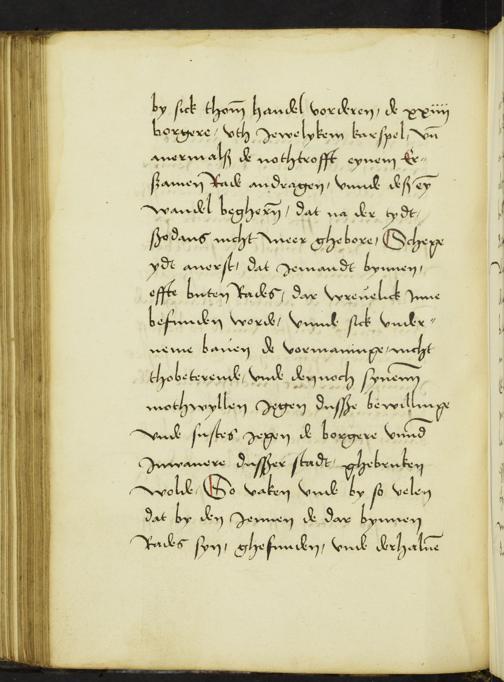 by sick thom̄ handel vorderen, de xxiiii
borgere, vth Jewelykem karspel, vn̄
auermalß de nothtrofft eynem Er-
ßamen Rade andragen, vnnde deß eỹ
wandel beghern̄, dat na der tydt,
ßodans nicht meer ghebore, Schege
ydt auerst, dat Jemandt bynnen,
effte buten Rades, dar wreuelick Inne
befunden worde, vnnde sick vnder-
neme bauen de vormaninge, nicht
thobeterende, vnde dennoch synem̄
mothwyllen Jegen dusße bewillinge
vnde sustes Jegen de borgere vnnd̄
Inwanere dusßer stadt, ghebruken
wolde, So vaken vnde by so velen
dat by den Jennen de dar bynnen
Rades syn, ghefunden, vnde derhalue̅